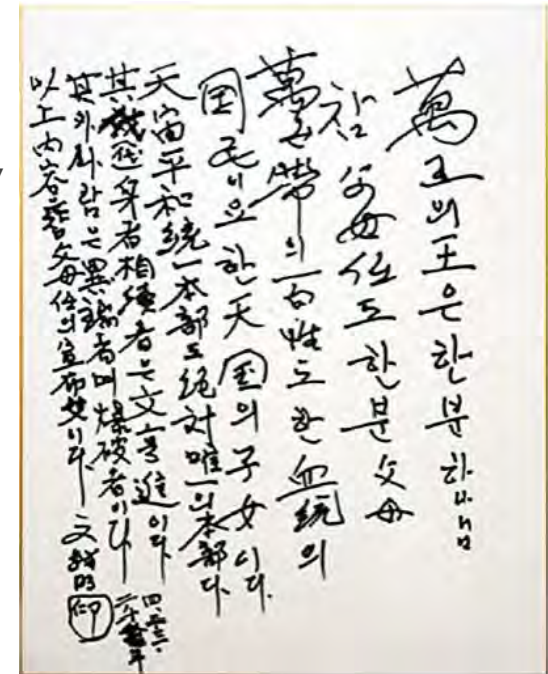 萬王의 王은 한 분 하나님
참 父母任도 한 분 父母
萬世帶의 百性도 한 血統의
国民이요 한 天国의 子女이다.
天宙平和統一本部도 絶対唯一의 本部다.
其 代身者 相續者는 文亨進이다.
其外 사람은 異端者며 爆破者이다.
以上内容은 父母任의 宣布文이다 文鮮明 印
四.二三.
二千十年